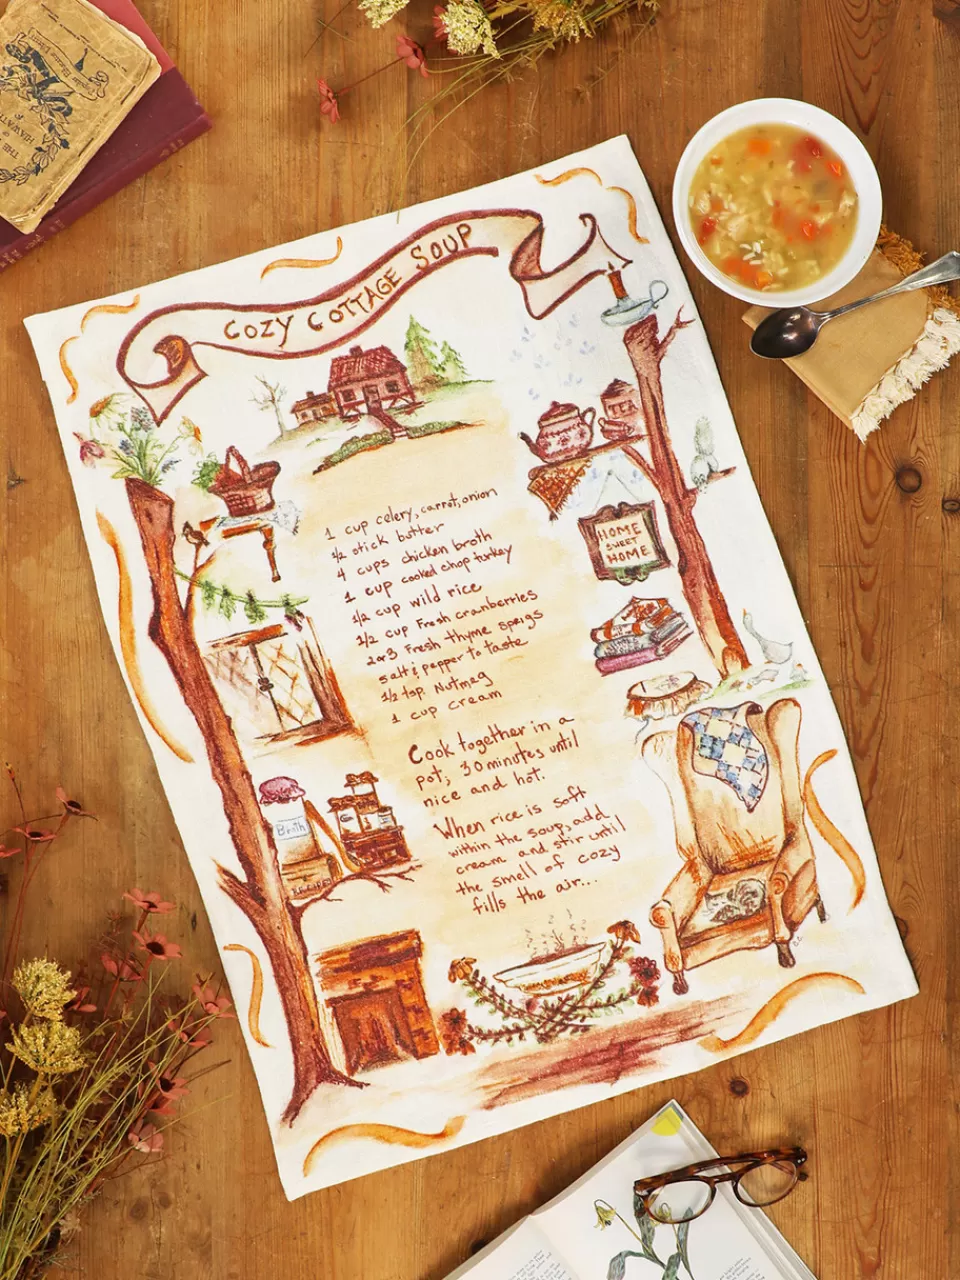 THE
HAWATH
COZY COTTAGE SOUP
TEA
HOME
SWEET
HOME
1 cup celery, carrot, onion
1/2 stick butter
4 cups chicken broth
1 cup cooked chop turkey
1/2 cup wild rice
1/2 cup Fresh cranberries
2 or 3 Fresh thyme sprigs
salt & pepper to taste
1/2 tsp. Nutmeg
1 cup cream
Cook together in a
pot; 30 minutes until
nice and hot.
When rice is soft
within the soup, add
cream and stir until
the smell of cozy
fills the air...
Broth
RECIPES